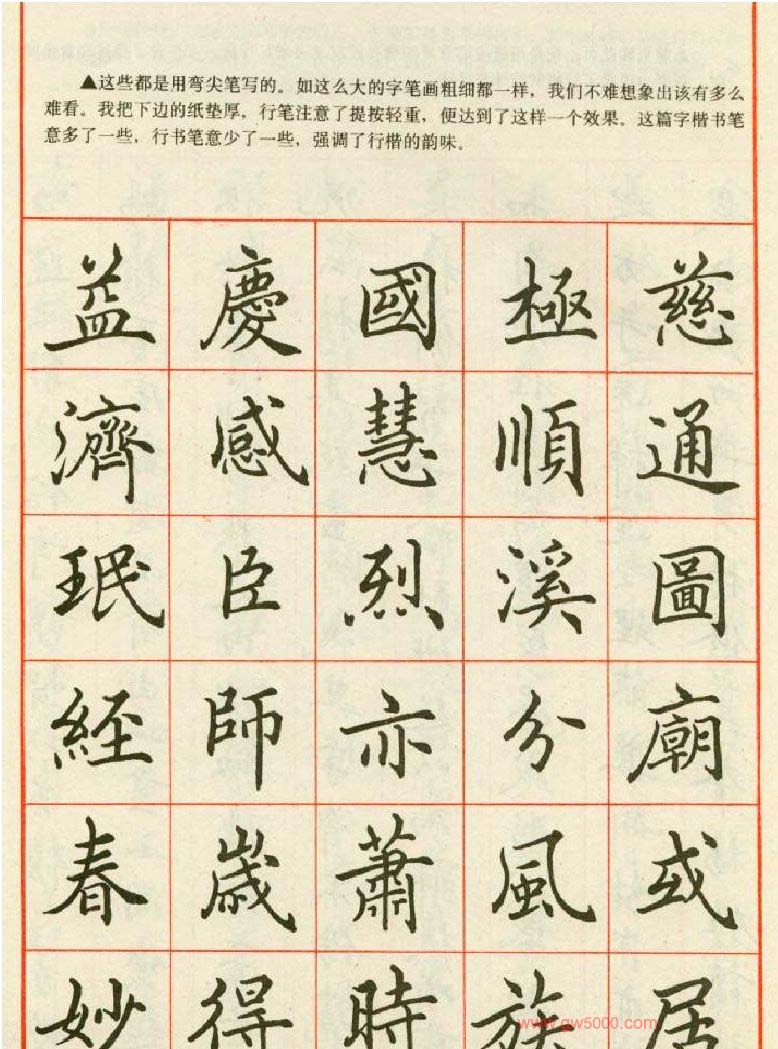 ▲这些都是用弯尖笔写的。如这么大的字笔画粗细都一样，我们不难想象出该有多么
难看。我把下边的纸垫厚，行笔注意了提按轻重，便达到了这样一个效果。这篇字楷书笔
意多了一些，行书笔意少了一些，强调了行楷的韵味。
益 慶 國 極 慈
濟 感 慧 順 通
珉 臣 烈 溪 圖
經 師 亦 分 廟
春 歲 蕭 風 或
妙 得 時 族 居
www.gw5000.com